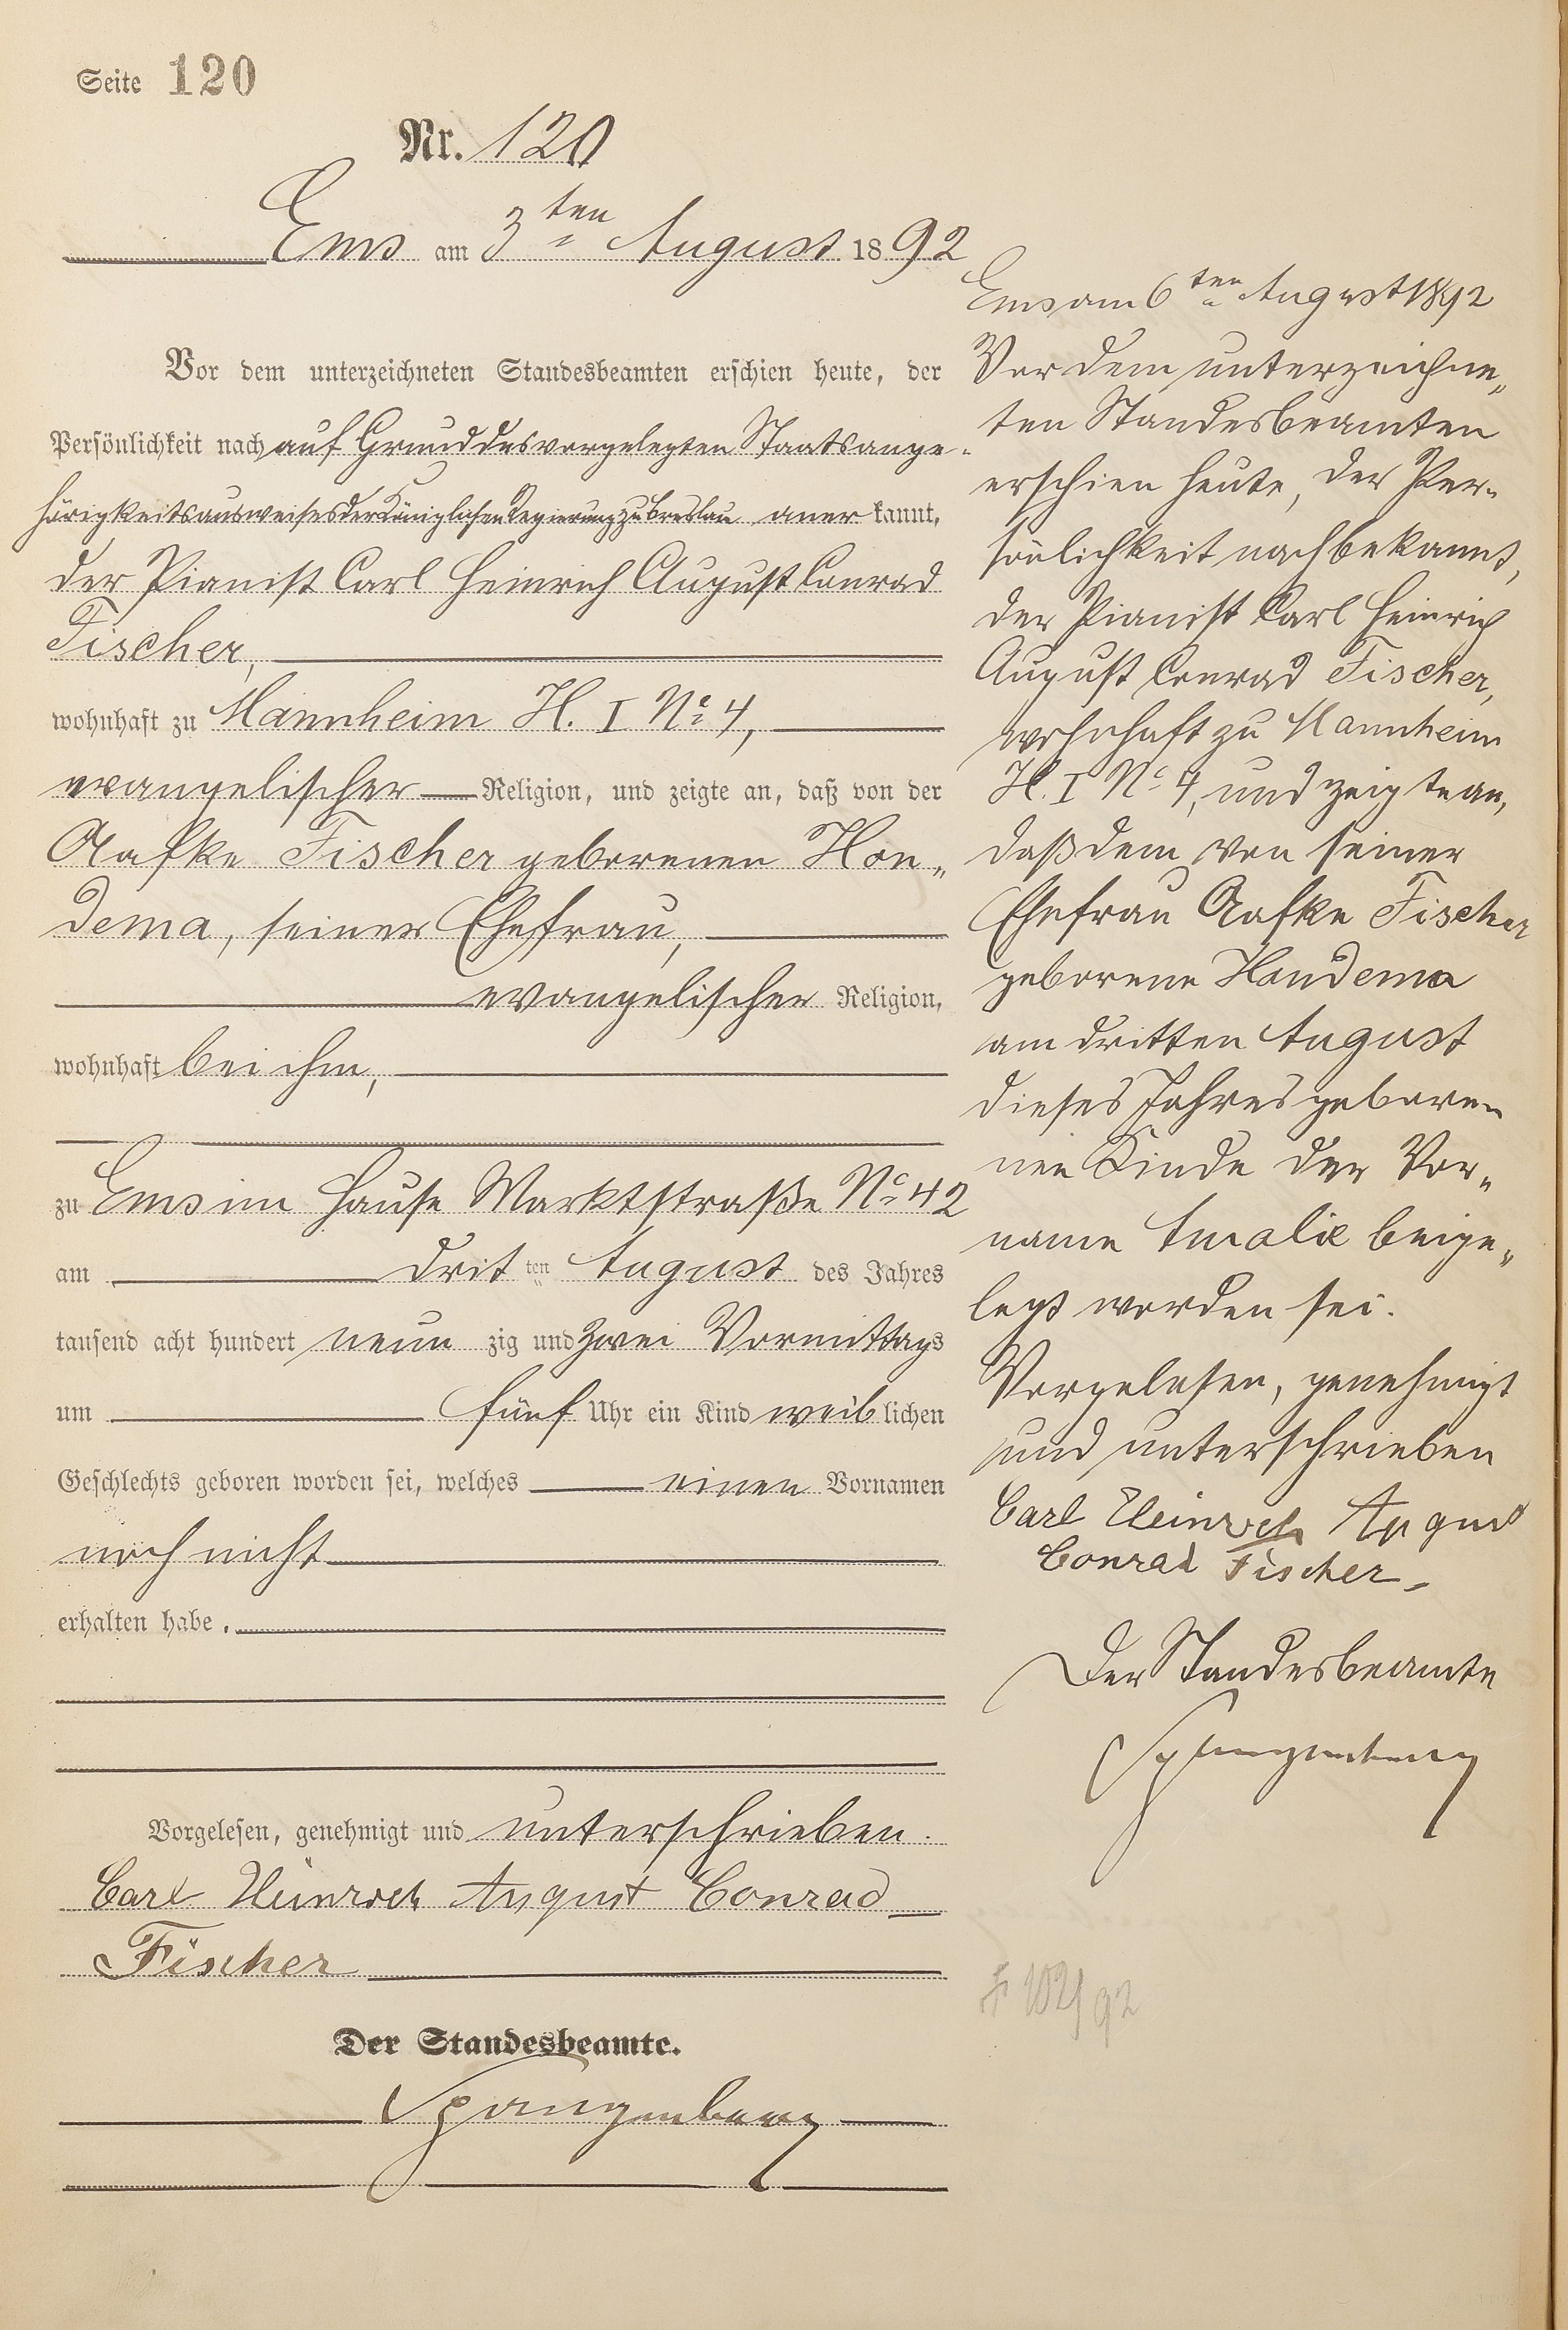 Seite 120
Nr. 120
Ems am 3ten August 1892
Vor dem unterzeichneten Standesbeamten erschien heute, der
Persönlichkeit nach auf Grund des vorgelegten Staatsange-
hörigkeitsausweises der Königlichen Regierung zu Breslau anerkannt,
der Pianist Carl Heinrich August Conrad
Fischer,
wohnhaft zu Mannheim H. I No 4,
evangelischer Religion, und zeigte an, daß von der
Aafke Fischer geborenen Hon„
dema, seiner Ehefrau,
evangelischer Religion,
wohnhaft bei ihm,
zu Ems im Hause Marktstraße No 42
am dritten August des Jahres
tausend acht hundert neunzig und zwei Vormittags
um fünf Uhr ein Kind weiblichen
Geschlechts geboren worden sei, welches einen Vornamen
noch nicht
erhalten habe.
Vorgelesen, genehmigt und unterschrieben.
Carl Heinrich August Conrad
Fischer
Der Standesbeamte.
Spangenberg
Ems am 6ten August 1892
Vor dem unterzeichne„
ten Standesbeamten
erschien heute, der Per-
sönlichkeit nach bekannt,
der Pianist Carl Heinrich
August Conrad Fischer,
wohnhaft zu Mannheim
H. I No 4, und zeigte an,
daß dem von seiner
Ehefrau Aafke Fischer
geborene Hondema
am dritten August
dieses Jahres gebore-
nen Kinde der Vor„
name Amalie beige„
legt worden sei.
Vorgelesen, genehmigt
und unterschrieben
Carl Heinrich August
Conrad Fischer.
Der Standesbeamte
Spangenberg
† 102/92